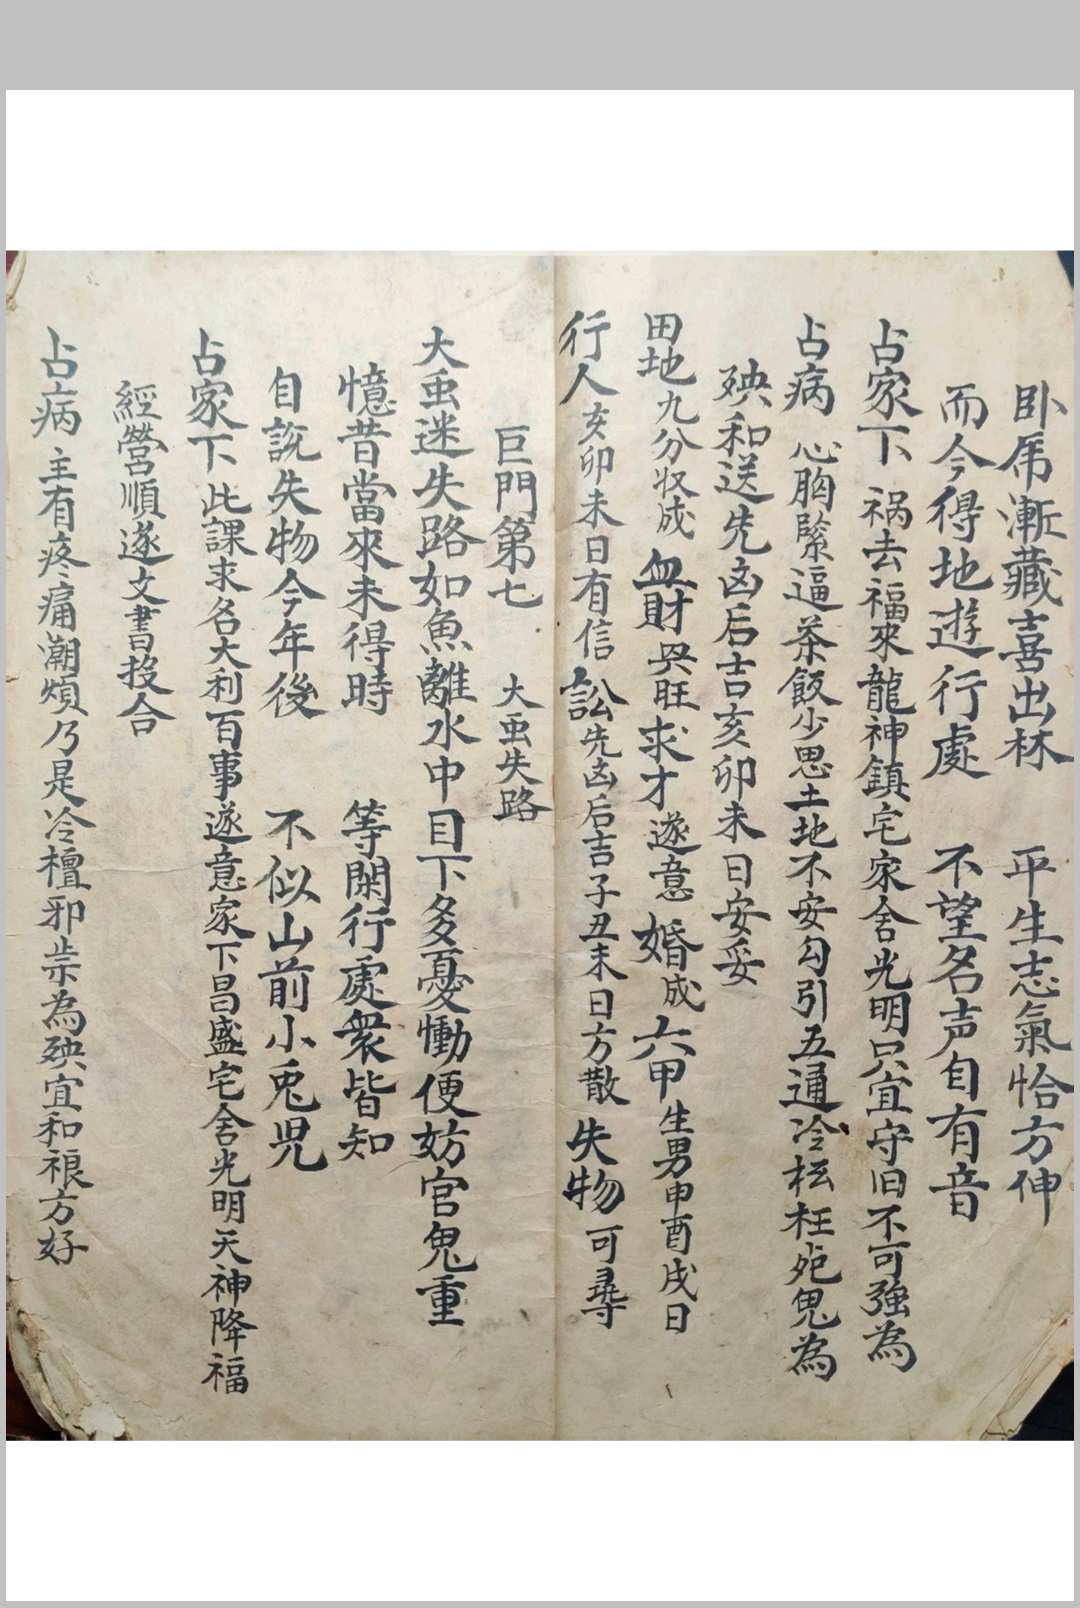 卧席漸藏喜出林　平生志氣恰方伸
而今得地遊行處　不望名声自有音
占家下　祸去福來龍神鎮宅家舍光明只宜守旧不可強為
占病　心胸緊逼茶飯少思土地不安勾引五通冷枉死鬼為
殃和送先凶后吉亥卯未日安妥
田地九分收成　血財興旺　求才遂意　婚成　六甲生男申酉戌日
行人亥卯未日有信　訟先凶后吉子丑未日方散　失物可尋
巨門第七　大虫失路
大虫迷失路如魚離水中目下多憂慟便妨官鬼重
憶昔當來未得時　等閑行處衆皆知
自說失物今年後　不似山前小兎児
占家下　此課求名大利百事遂意家下昌盛宅舍光明天神降福
經營順遂文書投合
占病　主有疼痛潮煩乃是冷檀邪祟為殃宜和禳方好